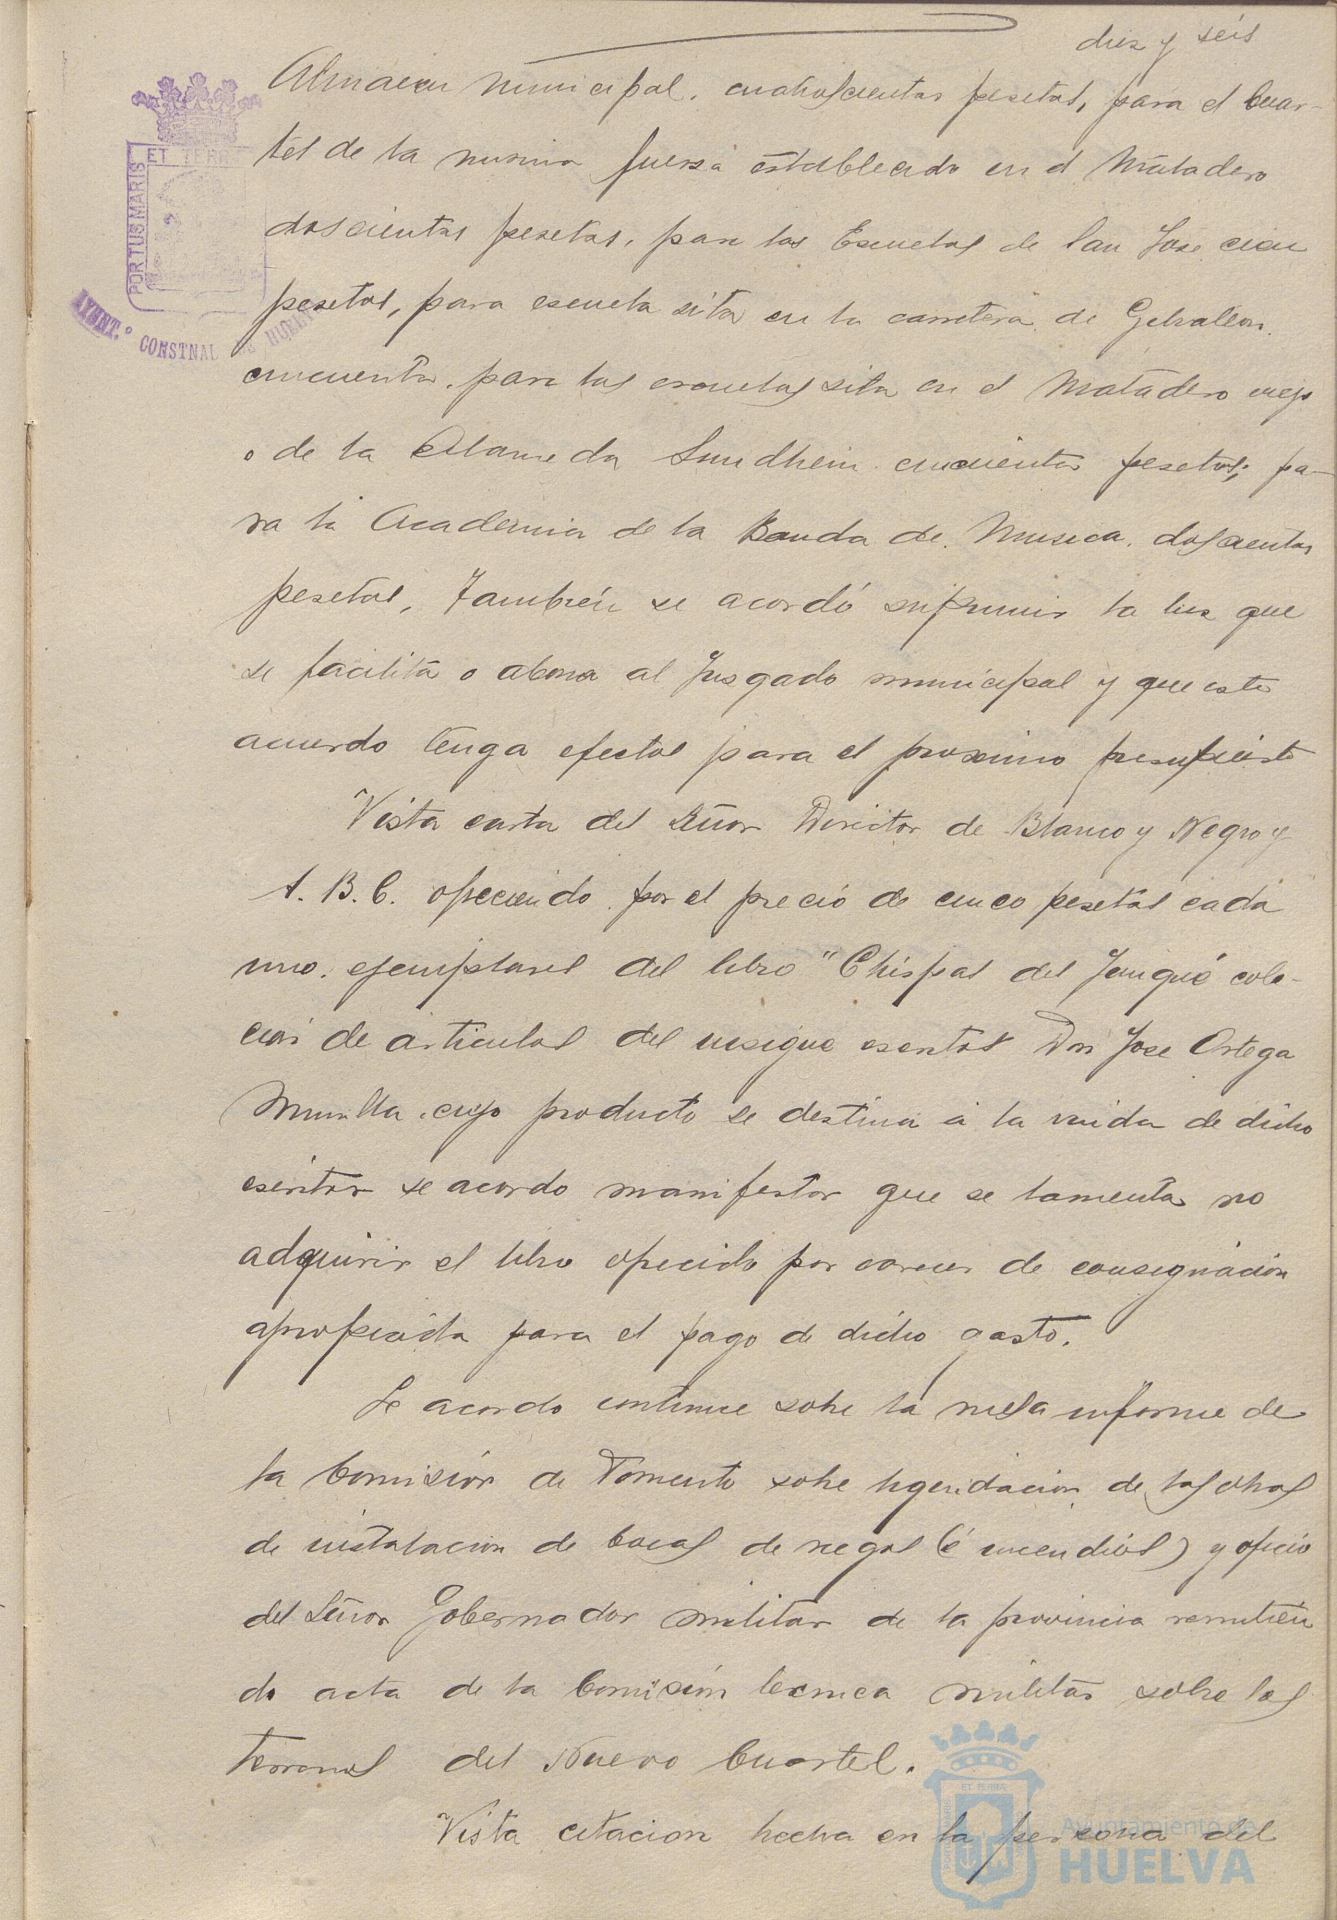 diez y seis
Almacen municipal, cuatrocientas pesetas, para el Cuar-
tel de la misma fuerza establecido en el Matadero
doscientas pesetas, para las Escuelas de San Jose cien
pesetas, para escuela sita en la carretera de Gibraleon
cincuenta, para las escuelas sita en el Matadero viejo
o de la Alameda Sundhein cincuenta pesetas; pa-
ra la Academia de la Banda de Musica, doscientas
pesetas, Tambien se acordó suprimir la luz que
se facilita o abona al Juzgado municipal y que este
acuerdo tenga efectos para el proximo presupuesto
Vista carta del Señor Director de Blanco y Negro y
A. B. C. ofreciendo por el precio de cinco pesetas cada
uno, ejemplares del libro "Chispas del Yunque cole-
cion de articulos del insigne escritor Don Jose Ortega
Munilla, cuyo producto se destina á la viuda de dicho
escritor se acordo manifestar que se lamenta no
adquirir el libro ofrecido por carecer de consignacion
apropiada para el pago de dicho gasto.
Se acordo continue sobre la mesa informe de
la Comision de Fomento sobre liquidacion de las obras
de instalacion de bocas de riegos (é incendios) y oficio
del Señor Gobernador militar de la provincia remitien
do acta de la Comisión tecnica militar sobre los
terrenos del Nuevo Cuartel.
Vista citacion hecha en la persona del
PORTUS MARIS
ET TERR
AYUNT.º CONSTNAL DE HUELVA
ET TERRA
Ayuntamiento de
HUELVA